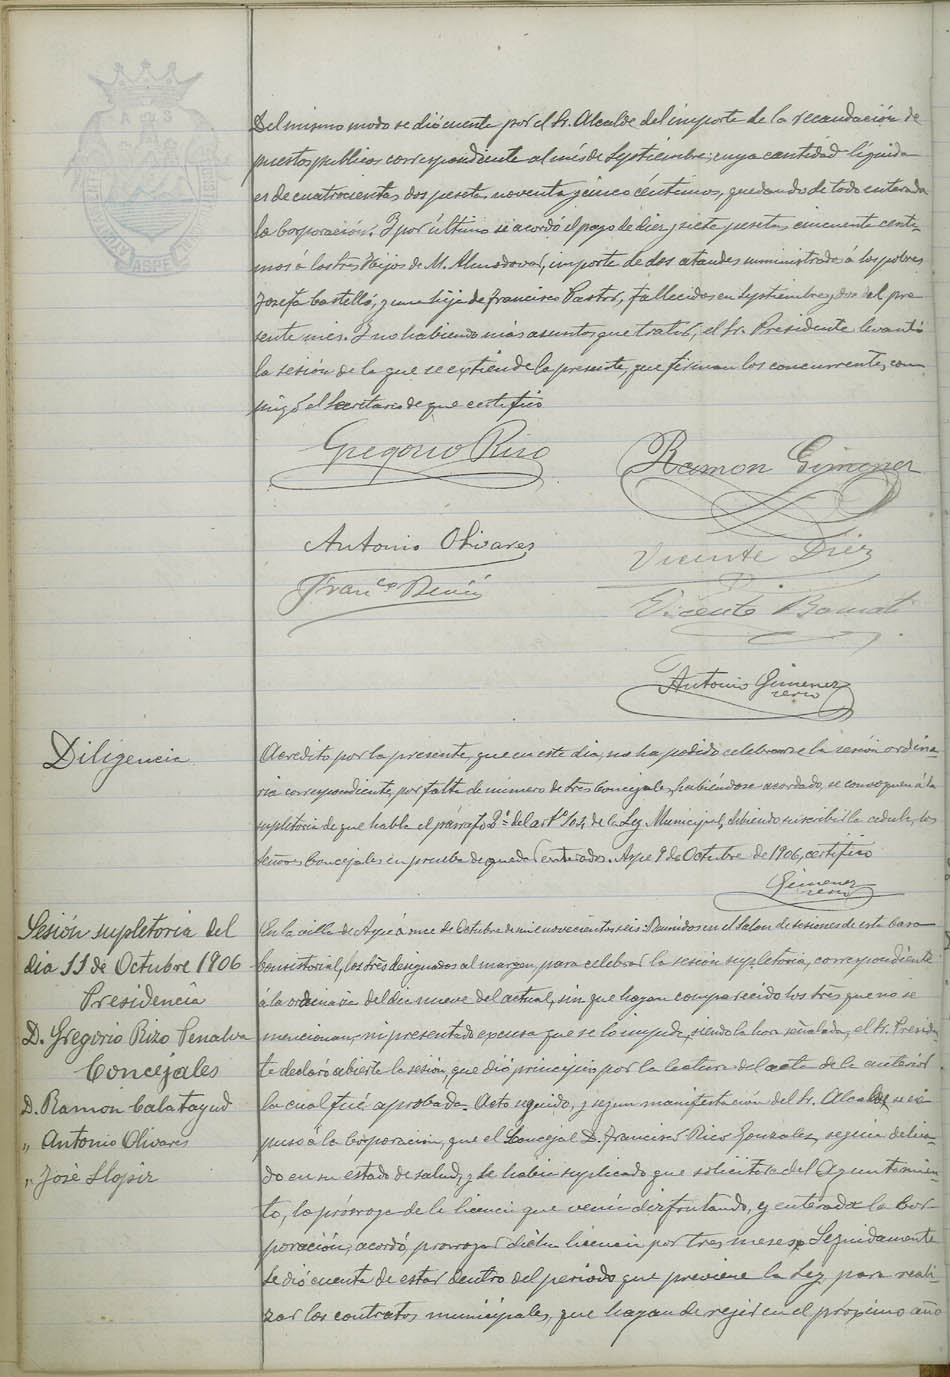 Del mismo modo se dió cuenta por el Sr. Alcalde del importe de la recaudación de
puestos publicos correspondiente al més de Septiembre; cuya cantidad líquida
es de cuatrocientas dos pesetas noventa y cinco céntimos, quedando de todo enterada
la Corporación. Y por último se acordó el pago de diez y siete pesetas cincuenta centi-
mos á los tres Hijos de M. Almodovar, importe de dos ataudes suministrados á los pobres
Josefa Castelló, y una hija de Francisco Pastor, fallecidos en Septiembre y dos del pre-
sente mes. Y no habiendo más asuntos que tratar, el Sr. Presidente levantó
la sesión de la que se extiende la presente, que firman los concurrentes, con-
migo el Secretario de que certifico
Gregorio Rizo
Ramon Gimenez
Antonio Olivares
Vicente Diez
Franco
Vicente
Antonio Gimenez
serio
Diligencia
Acredito por la presente, que en este dia, no ha podido celebrarse la sesión ordina-
ria correspondiente, por falta de número de tres Concejales, habiéndose acordado, se convoquen á la
supletoria de que habla el párrafo 2º del artº 104 de la Ley Municipal, debiendo suscribir la cedula, los
Señores Concejales en prueba de quedar enterados. Aspe 9 de Octubre de 1906, certifico
Gimenez
serio
Sesión supletoria del
dia 11 de Octubre 1906
Presidencia
D. Gregorio Rizo Penalva
Concejales
D. Ramon Calatayud
" Antonio Olivares
" José Llopiz
En la villa de Aspe á once de Octubre de mil novecientos seis: Reunidos en el Salon de sesiones de esta Casa
Consistorial, los tres designados al margen, para celebrar la sesión supletoria, correspondiente
á la ordinaria del dia nueve del actual, sin que hayan comparecido los tres que no se
mencionan, ni presentado excusa que se lo impida, siendo la hora señalada, el Sr. Presiden-
te declaró abierta la sesión, que dió principio por la lectura del acta de la anterior
la cual fué aprobada. Acto seguido, y segun manifestación del Sr. Alcalde se ex-
puso á la Corporacion, que el Concejal D. Francisco Rico Gonzalez, seguia delica-
do en su estado de salud, y le habia suplicado que solicitara del Ayuntamien-
to, la prórroga de la licencia que venia disfrutando, y enterada la Cor-
poración, acordó, prorrogar dicha licencia por tres meses. Seguidamente
se dió cuenta de estar dentro del periodo que previene la Ley para reali-
zar los contratos municipales, que hayan de regir en el próximo año